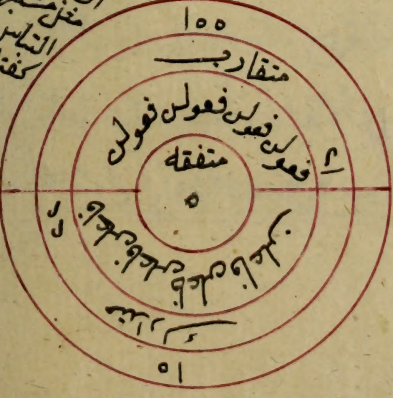 ١٥٥
متقارب
فعولن فعولن فعولن فعولن
متفقه
٥
فاعلن فاعلن فاعلن فاعلن
متدارك
١٥